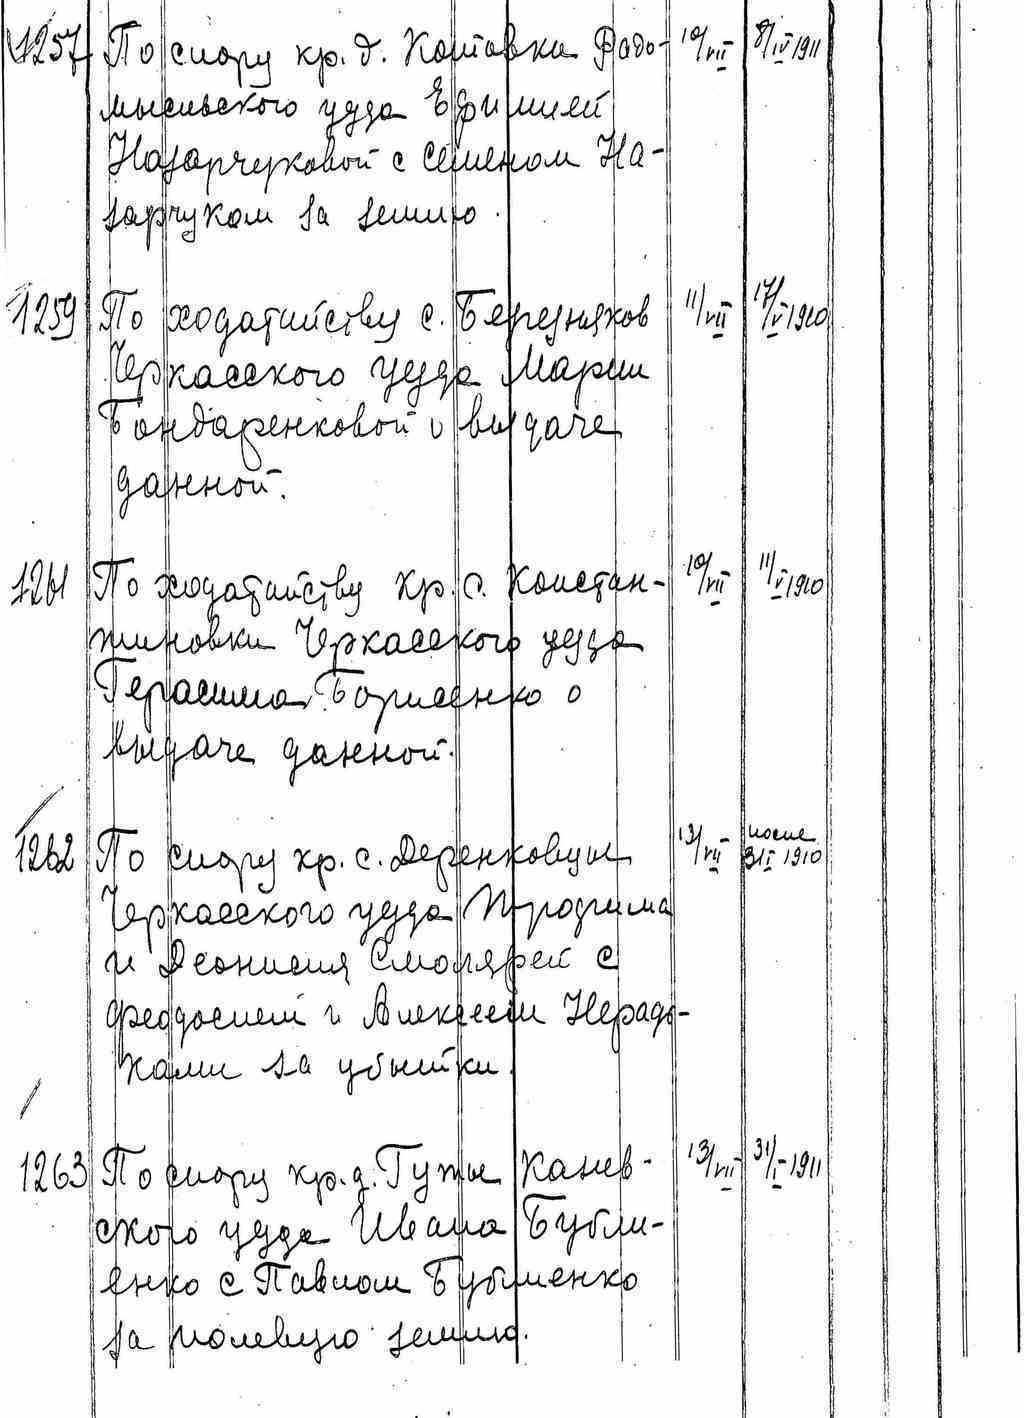 1257 По спору кр. д. Котовки Радо- 10/VII 8/IV 1911
мысльского уезда Ефимией
Назарчуковой с Семеном На-
зарчуком за землю.
1259 По ходатайству с. Березняков 11/VII 17/V 1910
Черкасского уезда Марии
Бондаренковой о выдаче
данной.
1261 По ходатайству кр. с. Констан- 10/VII 11/V 1910
тиновки Черкасского уезда
Герасима Борисенко о
выдаче данной.
1262 По спору кр. с. Деренковцы 13/VII после 31 I 1910
Черкасского уезда
и Деонисия Смолярей с
Феодосием и Алексеем Нерадь-
ками за убытки.
1263 По спору кр. д. Гуты Канев- 13/VII 31/I 1911
ского уезда Ивана Бубли-
енко с Павлом Бублиенко
за полевую землю.